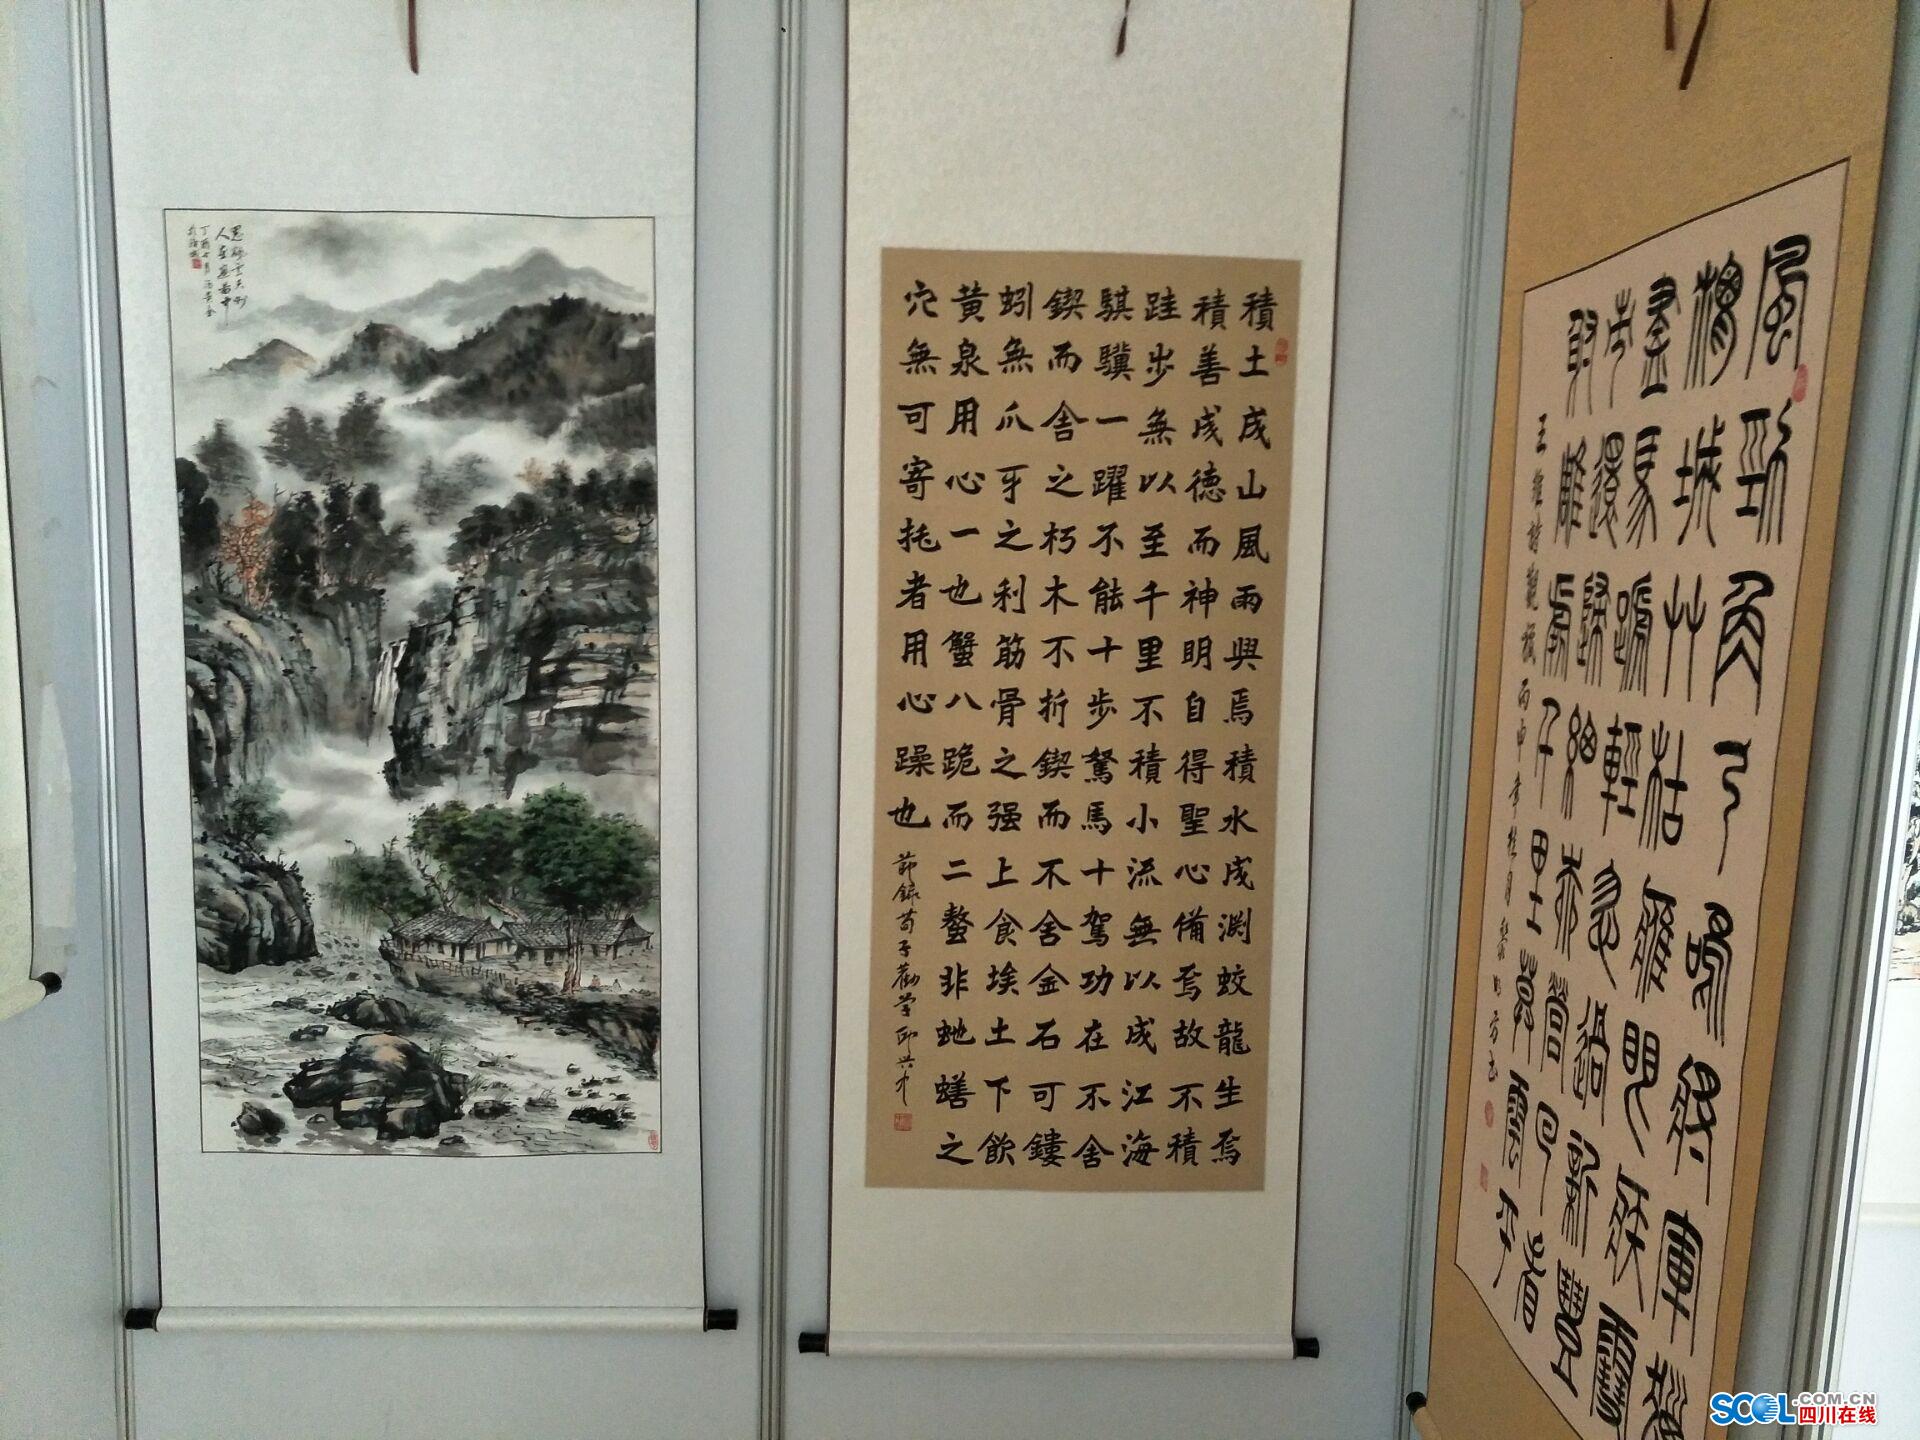 人在畫圖中
丁酉七月
積土成山風雨興焉積水成渊蛟龍生焉
積善成德而神明自得聖心備焉故不積
跬步無以至千里不積小流無以成江海
騏驥一躍不能十步駑馬十駕功在不舍
鍥而舍之朽木不折鍥而不舍金石可鏤
蚓無爪牙之利筋骨之强上食埃土下飲
黄泉用心一也蟹八跪而二螯非虵蟮之
穴無可寄托者用心躁也
節録荀子勸学邱
風勁角弓鳴將軍獵
渭城草枯鷹眼疾雪
盡馬蹄輕忽過新豐
市還歸細柳營回看
射雕處千里暮雲平
王維詩觀獵丙申年桂月
SCOL.COM.CN
四川在线